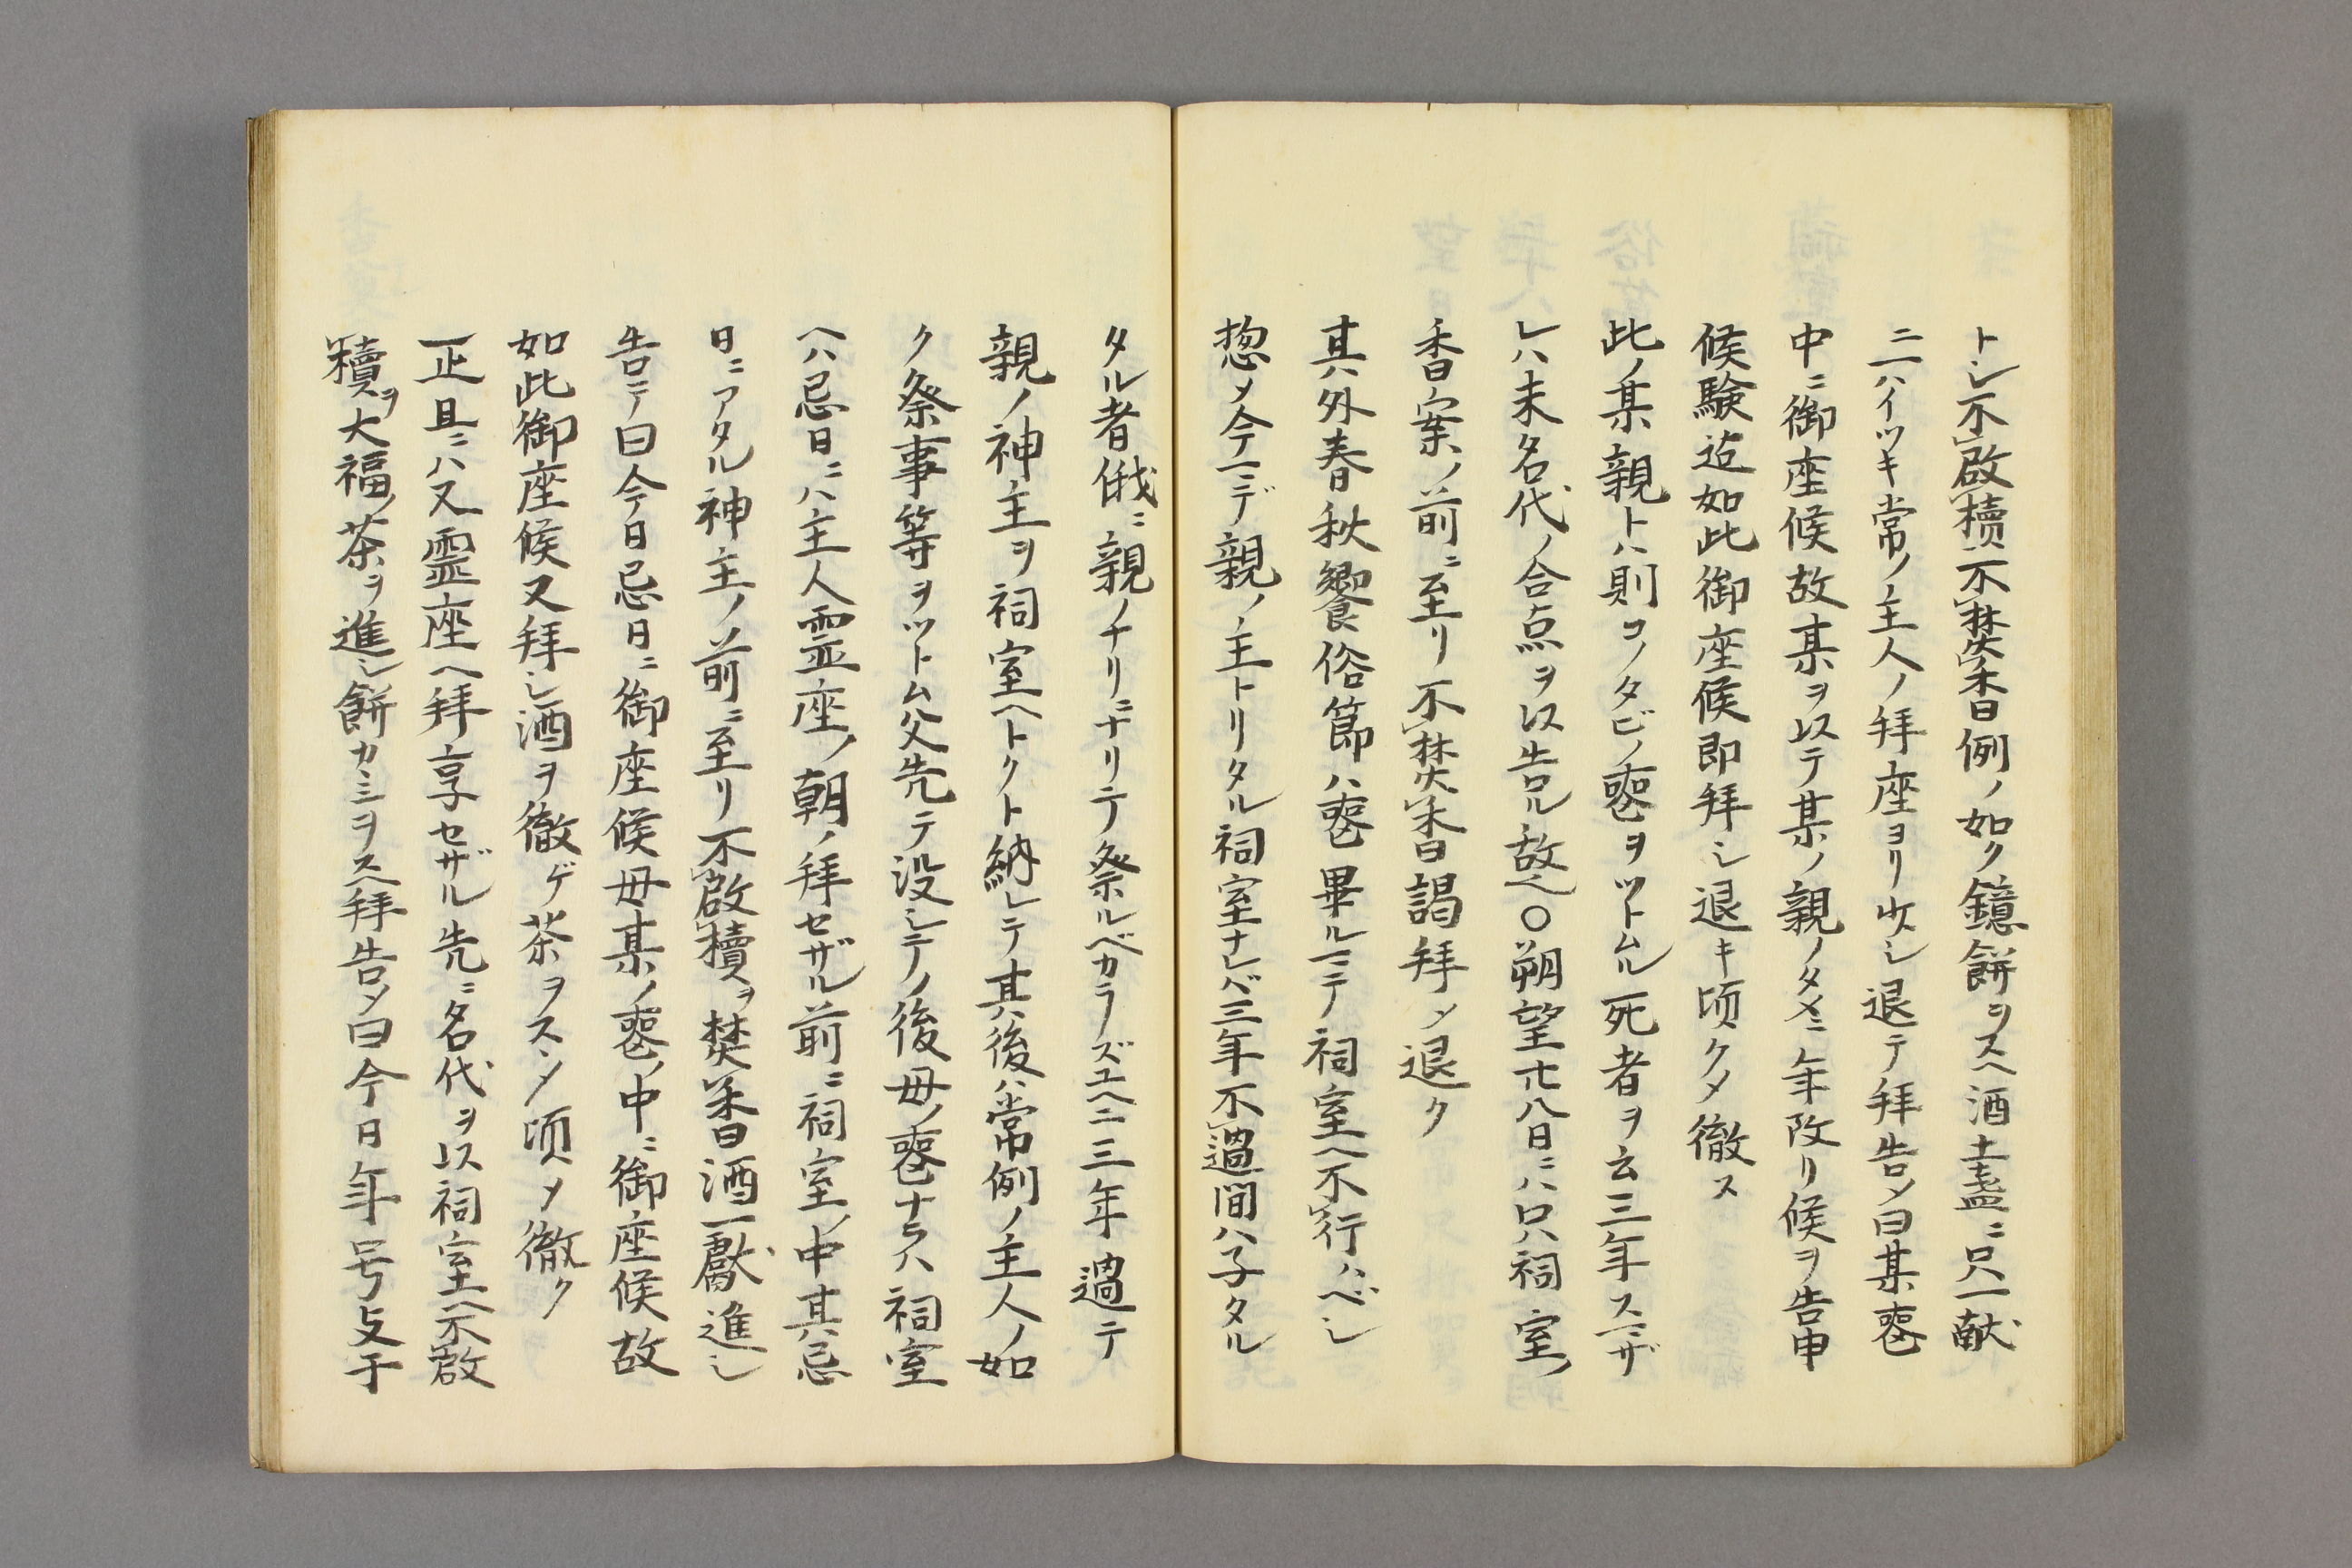 トシ不啟櫝不焚香例ノ如ク鏡餅ヲスヘ酒土盞ニ只一献
ニハイツキ常ノ主人ノ拝座ヨリ少シ退テ拝告ノ曰某喪
中ニ御座候故某ヲ以テ某ノ親ノタメニ年改リ候ヲ告申
候験迄如此御座候即拝シ退キ頃クメ徹ス
此ノ某親トハ則コノタビノ喪ヲツトムル死者ヲ云三年スミザ
レハ未名代ノ合点ヲ以告ル故ヘ〇朔望廿八日ニハ只祠室ノ
香案ノ前ニ至リ不焚香謁拝メ退ク
其外春秋饗俗節ハ喪畢ルニテ祠室ヘ不行ハベシ
惣メ今ニデ親ノ主トリタル祠室ナレバ三年不過間ハ子タル
タル者俄ニ親ノナリニナリテ祭ルベカラズユヘニ三年過テ
親ノ神主ヲ祠室ヘトクト納レテ其後ハ常例ノ主人ノ如
ク祭事等ヲツトム父先テ没シテノ後母ノ喪ナラハ祠室
ヘハ忌日ニハ主人霊座ノ朝ノ拝セザル前ニ祠室ノ中其忌
日ニアタル神主ノ前ニ至リ不啟櫝ヲ焚香酒一獻進シ
告テ曰今日忌日ニ御座候母某ノ喪ノ中ニ御座候故
如此御座候又拝シ酒ヲ徹ゲ茶ヲスヽメ頃メ徹ク
正旦ニハ又霊座ヘ拝享セザル先ニ名代ヲ以祠室ヘ不啟
櫝ヲ大福ノ茶ヲ進シ餅カミヲスヘ拝告メ曰今日年号支干